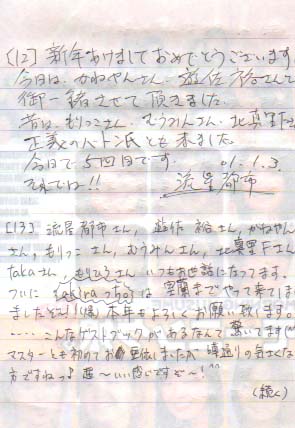 [12] 新年あけましておめでとうございます
今日は、かねやんさん、遊佐 裕さんと
御一緒させて頂きました。
昔は、もりっこさん、むうみんさん、北真里下
正義のバトン氏とも 来ました。
今日で 5回目です。 '01.1.3.
それでは!! 流星都市
[13] 流星都市さん、遊佐 裕さん、かねやん
さん、もりっこさん、むうみんさん、北真里下さん
takaさん、もりぞうさん いつもお世話になってます。
ついに は 室蘭までやって来てしま
いましたぞ!! 本年もよろしくお願い致します。
‥‥こんなゲストブックがあるなんて 驚いてます
マスターとも初めてお しましたが 噂通りの気さくな
方ですねっ♪ いい感じですぞ~!
(続く)